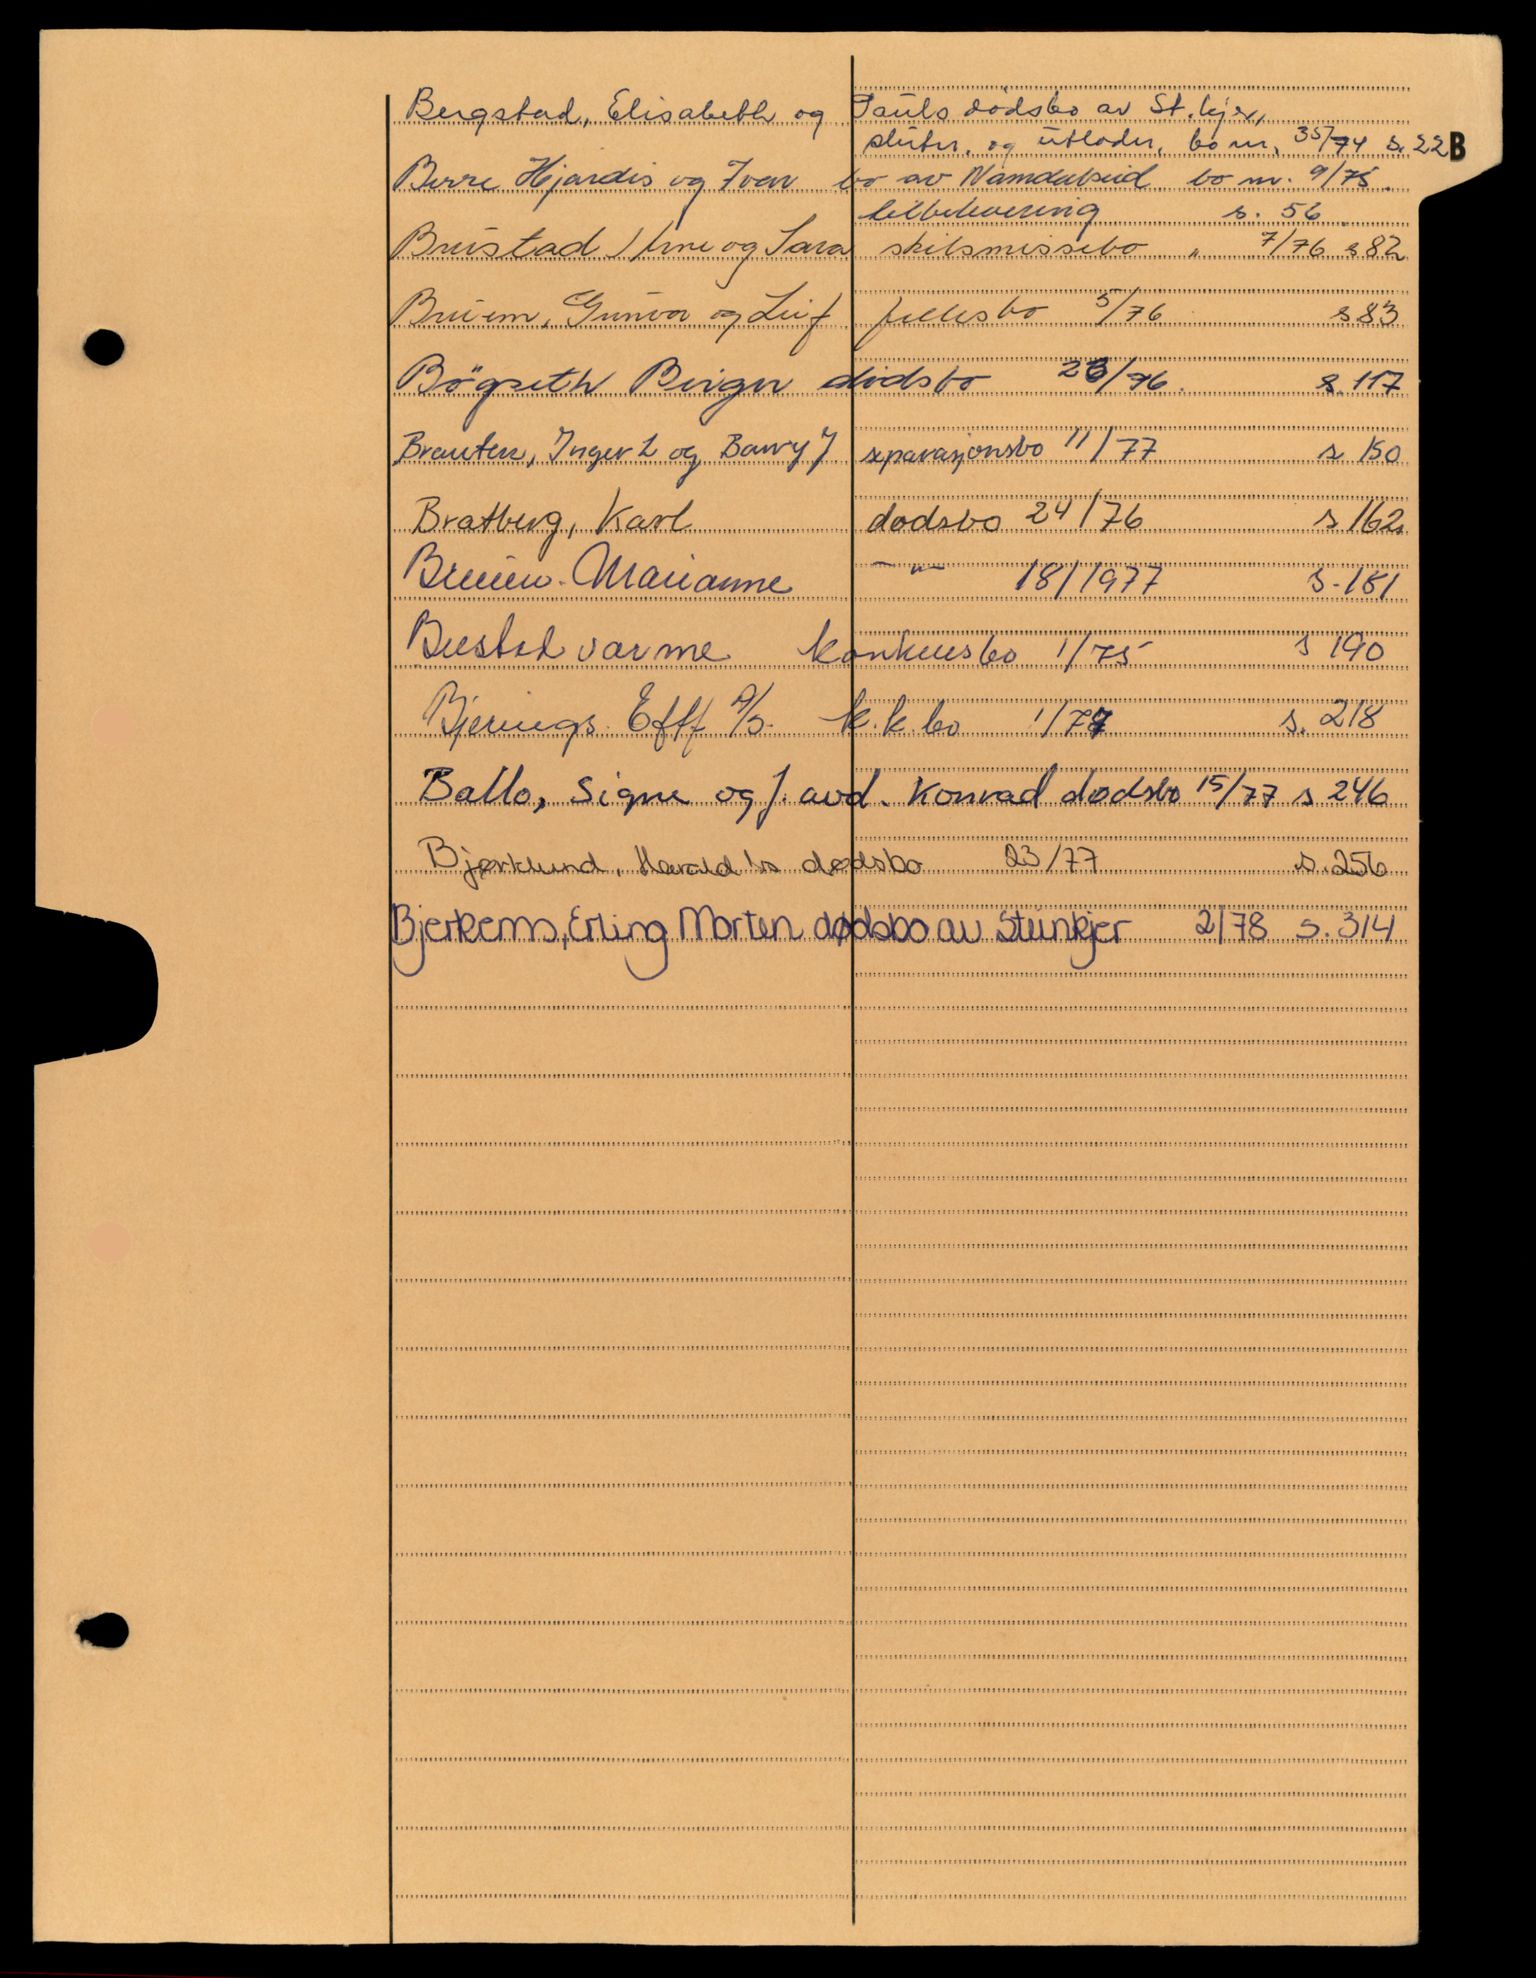 Bergstad, Elisabeth og Pauls dødsbo av St.kjer,
sluttn. og utlodn. bo nr. 35/74 s. 22
B
Berre Hjørdis og Ivar bo av Namdalseid bo nr. 9/75.
tilbakelevering s. 56
Brustad Arne og Sara skilsmissebo " 7/76 s 82
Bruem, Gunvor og Leif fellesbo 5/76 s 83
Bøgseth Birger dødsbo 23/76. s. 117
Brauten, Inger L og Barry J separasjonsbo 11/77 s 150
Bratberg, Karl dødsbo 24/76 s 162
Marianne — " — 18/1977 s. 181
Bustad varme konkursbo 1/75 s 190
Bjerings Eftf A/S. k.k.bo 1/77 s. 218
Ballo, Signe og f. avd. Konrad dødsbo 15/77 s 246
Bjørklund, Harald's dødsbo 23/77 s. 256
Bjerkems, Erling Morten dødsbo av Steinkjer 2/78 s. 314